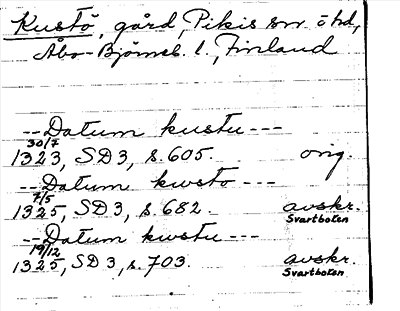 Kustö, gård, Pikis sn o hd,
Åbo-Björneb. l., Finland
--Datum kustu---
30/7
1323, SD3, s. 605. orig.
--Datum kwsto---
7/5
1325, SD3, s. 682. avskr.
Svartboken
--Datum kwstu---
19/12
1325, SD3, s. 703. avskr.
Svartboken